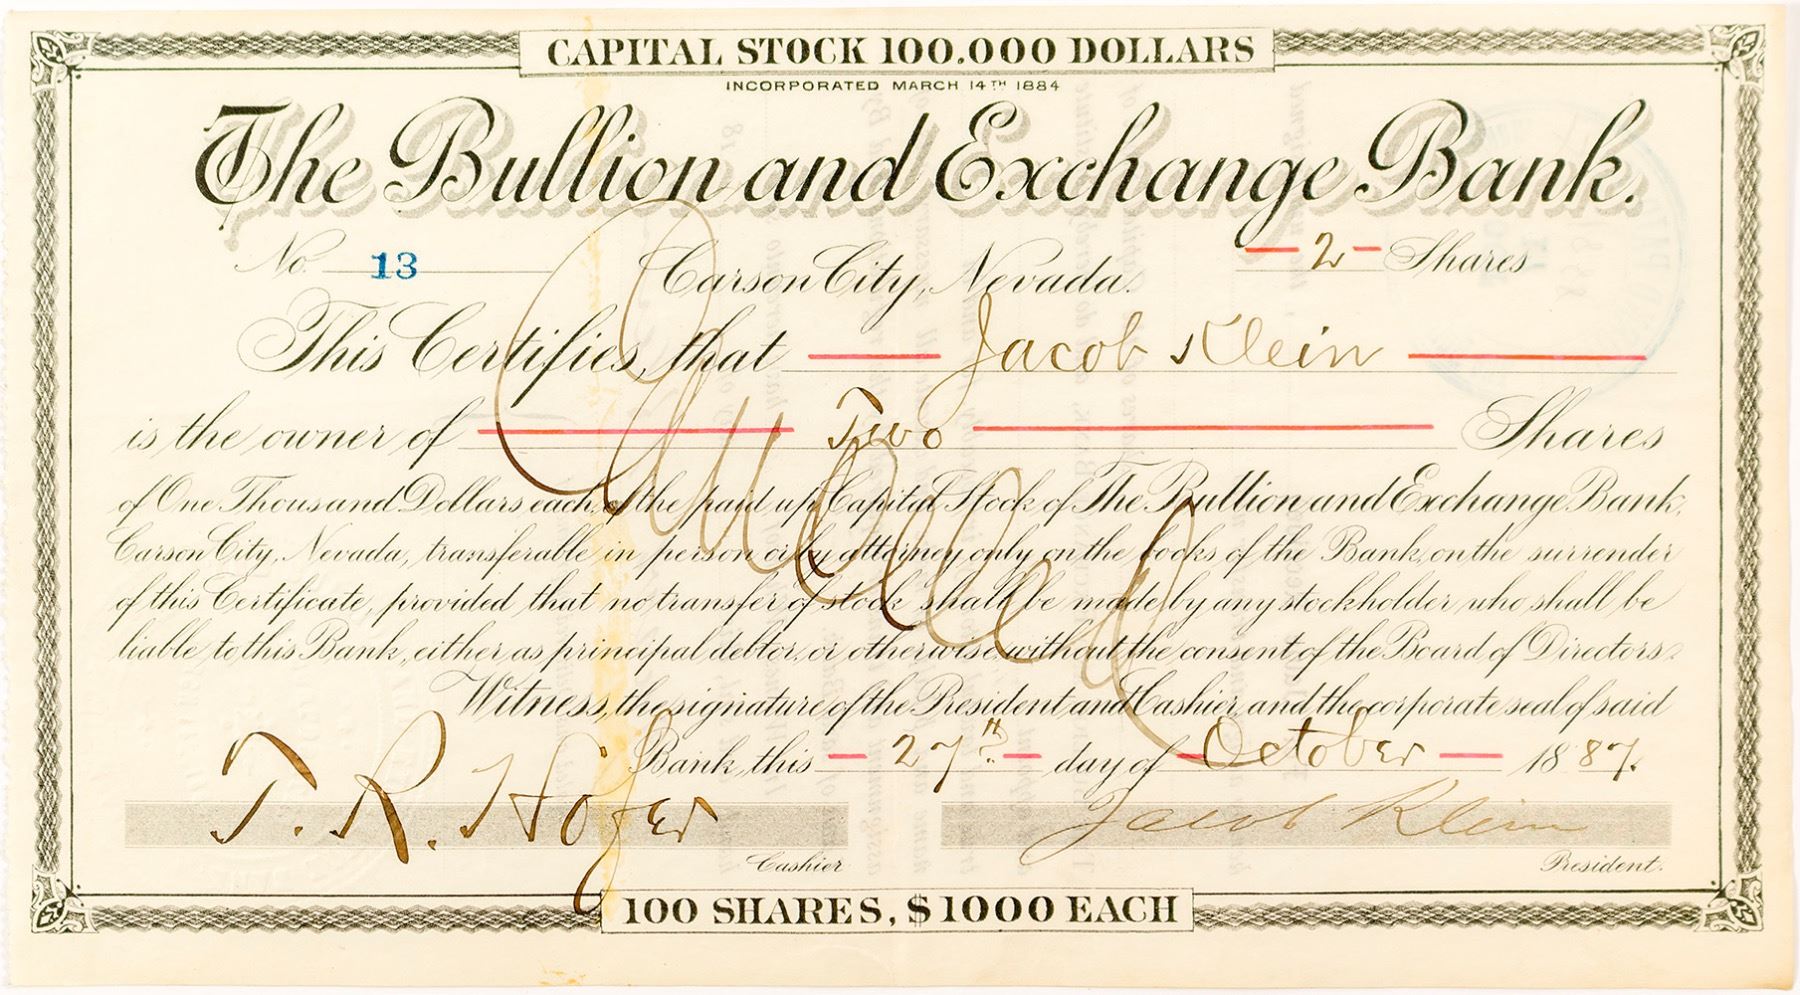 CAPITAL STOCK 100.000 DOLLARS
INCORPORATED MARCH 14TH 1884
The Bullion and Exchange Bank.
No. 13 Carson City, Nevada. 2 Shares
This Certifies, that Jacob Klein
is the owner of Two Shares
of One Thousand Dollars each, of the paid up Capital Stock of The Bullion and Exchange Bank,
Carson City, Nevada, transferable in person or by attorney only on the books of the Bank, on the surrender
of this Certificate, provided that no transfer of stock shall be made by any stockholder who shall be
liable to this Bank, either as principal debtor, or otherwise, without the consent of the Board of Directors.
Witness, the signature of the President and Cashier, and the corporate seal of said
Bank, this 27th day of October 1887.
T. R. Hofer Jacob Klein
Cashier President.
100 SHARES, $1000 EACH
Cancelled